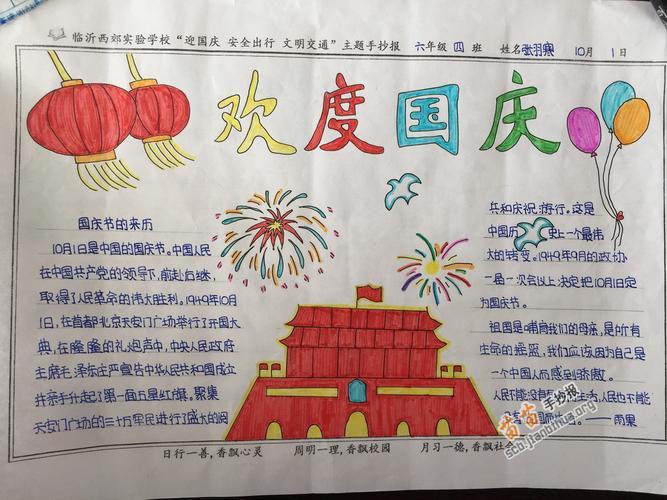 临沂西郊实验学校“迎国庆 安全出行 文明交通”主题手抄报 六年级 四 班 姓名张羽 10月 1日
欢度国庆
国庆节的来历
10月1日是中国的国庆节。中国人民
在中国共产党的领导下,前赴后继,
取得了人民革命的伟大胜利。1949年10月
1日,在首都北京天安门广场举行了开国大
典,在隆隆的礼炮声中,中央人民政府
主席毛泽东庄严宣告中华人民共和国成立
并亲手升起了第一面五星红旗。聚集
天安门广场的三十万军民进行了盛大的阅
兵和庆祝游行。这是
中国历史上一个最伟
大的转变。1949年9月的政协
一届一次会议上决定把10月1日定
为国庆节。
祖国是哺育我们的母亲,是所有
生命的摇篮,我们应该因为自己是
一个中国人而感到骄傲。
人民不能没有面包而生活,人民也不能
没有祖国而生活。——雨果
苗苗手抄报
sc.jianbihua.org
日行一善,香飘心灵 周明一理,香飘校园 月习一德,香飘社会